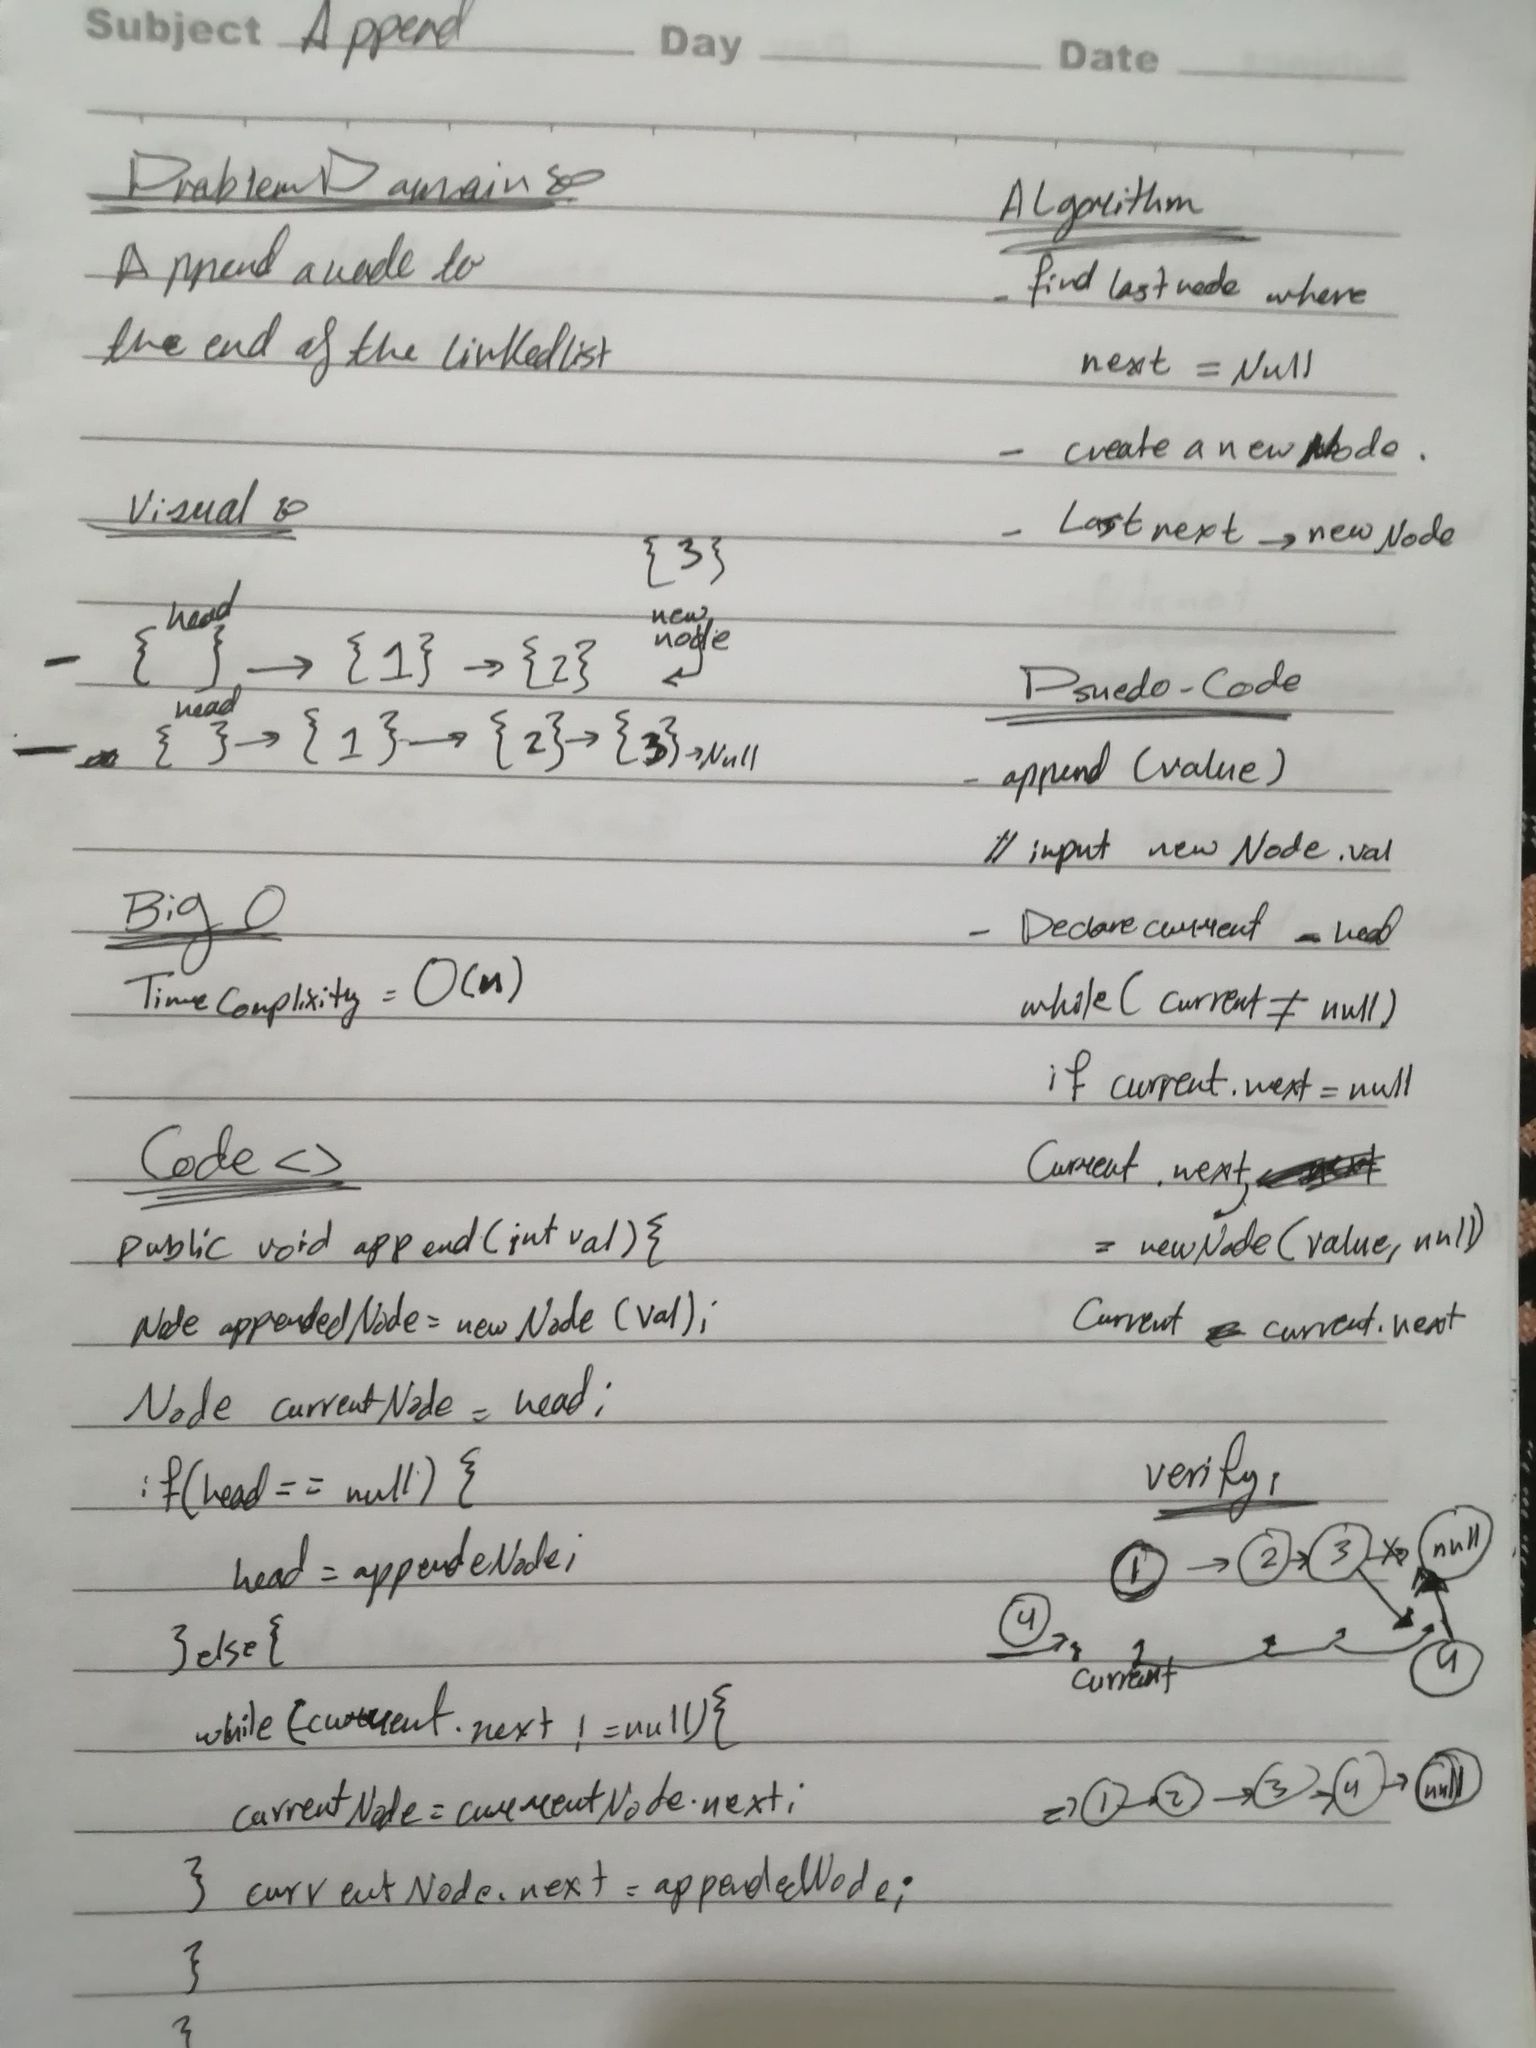 Subject Append Day Date
Problem Domain :
Append a node to
the end of the linkedlist
Visual :
{3}
new
node
head
- { } → {1} → {2}
head
- { } → {1} → {2} → {3} → Null
Big O
Time Complixity = O(n)
Code <>
public void append(int val){
Node appendedNode = new Node (val);
Node currentNode = head;
if(head == null) {
head = appendeNode;
}else{
while (current.next != null){
currentNode = currentNode.next;
} currentNode.next = appendedNode;
}
}
Algorithm
- find last node where
next = Null
- create a new Node.
- Last next → new Node
Psuedo-Code
- append (value)
// input new Node.val
- Declare current = head
while( current ≠ null)
if current.next = null
Current.next
= newNode(value, null)
Current = current.next
verify:
1 → 2 → 3 → null
4
current
4
=> 1 → 2 → 3 → 4 → null